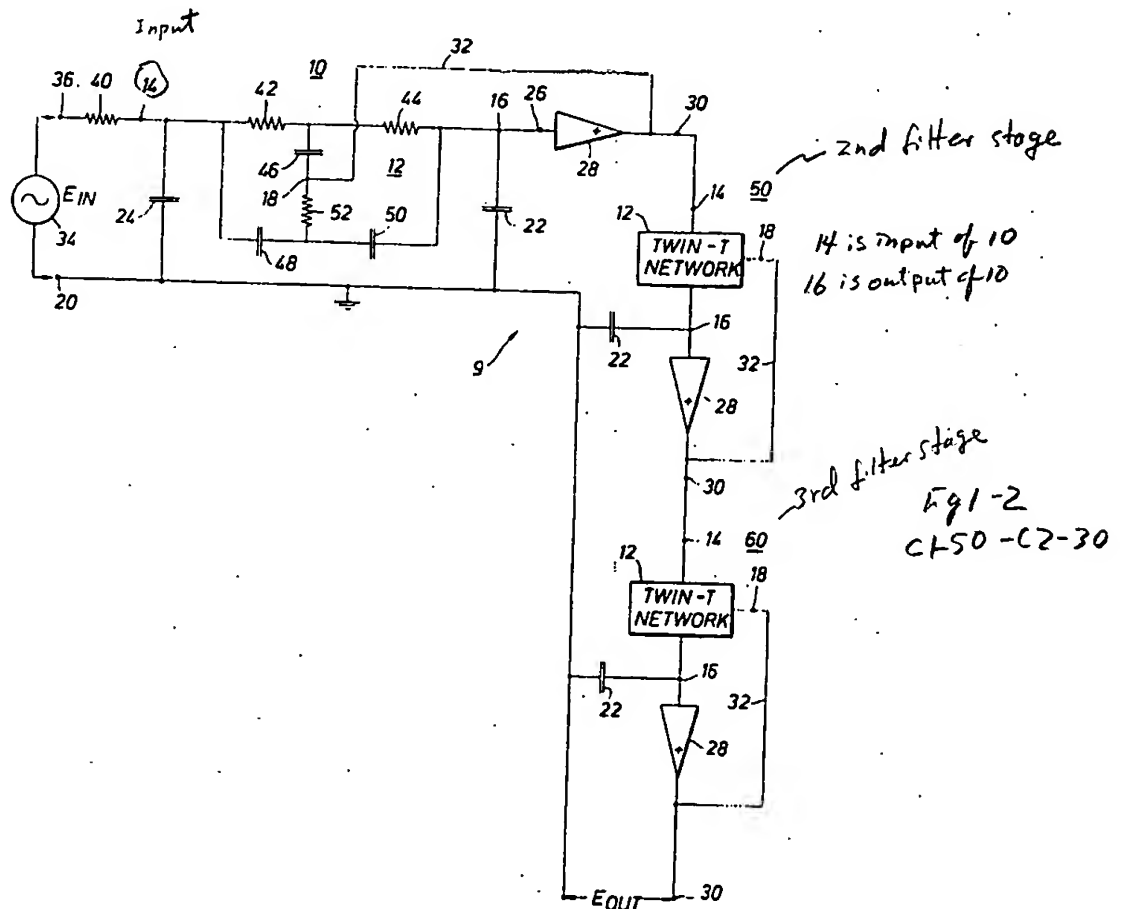 Input
36. 40 14
10
32
42
44
16
26
30
28
46
12
18
52
50
24
48
22
EIN
34
20
9
2nd filter stage
14
50
12
TWIN-T
NETWORK
18
14 is input of 10
16 is output of 10
16
22
32
28
30
3rd filter stage
Fig1-2
C1-50-C2-30
14
60
12
TWIN-T
NETWORK
18
16
22
32
28
EOUT
30